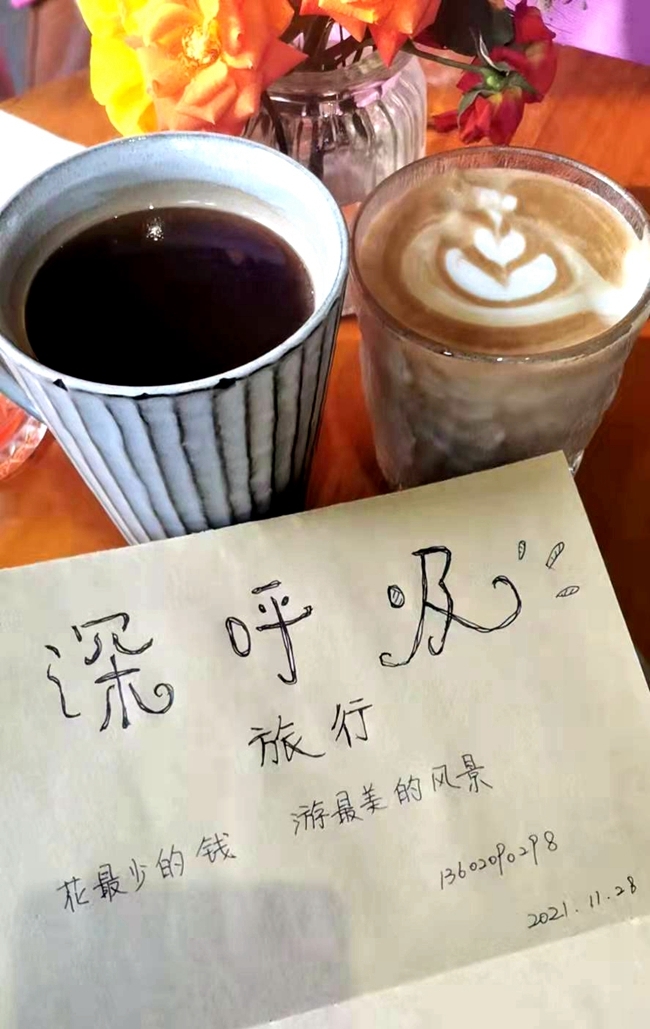 深呼吸
旅行
花最少的钱 游最美的风景
13602090298
2021.11.28